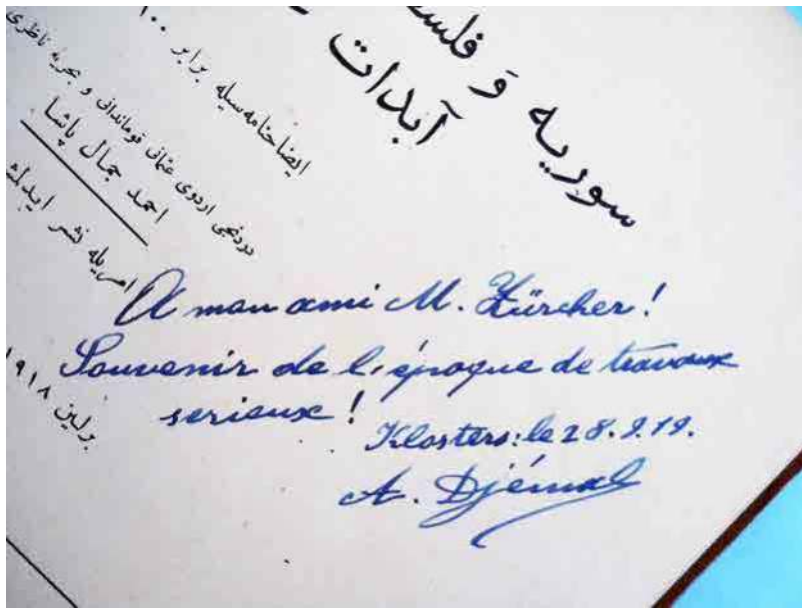 سوریه وَ فلس
آبدات
ایضاحنامه سیله برابر ١٠٠
دردنجی اردوی عثمانی قوماندانی و بحریه ناظری
احمد جمال پاشا
امریله نشر
برلین ١٩١٨
A mon ami M. Zürcher!
Souvenir de l'époque de travaux
serieux!
Klosters: le 28.9.19.
A. Djémal